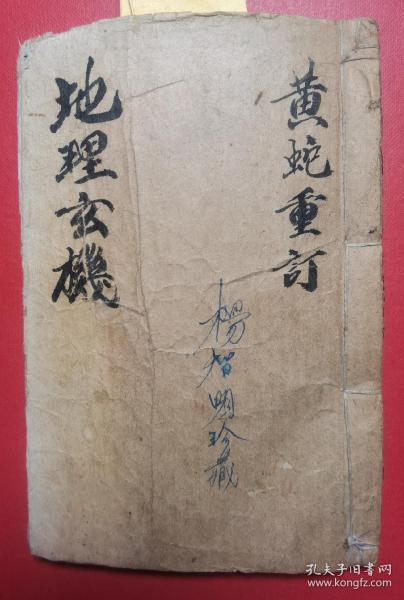 黄蛇重訂
地理玄機
楊智明珍藏
孔夫子旧书网
www.kongfz.com